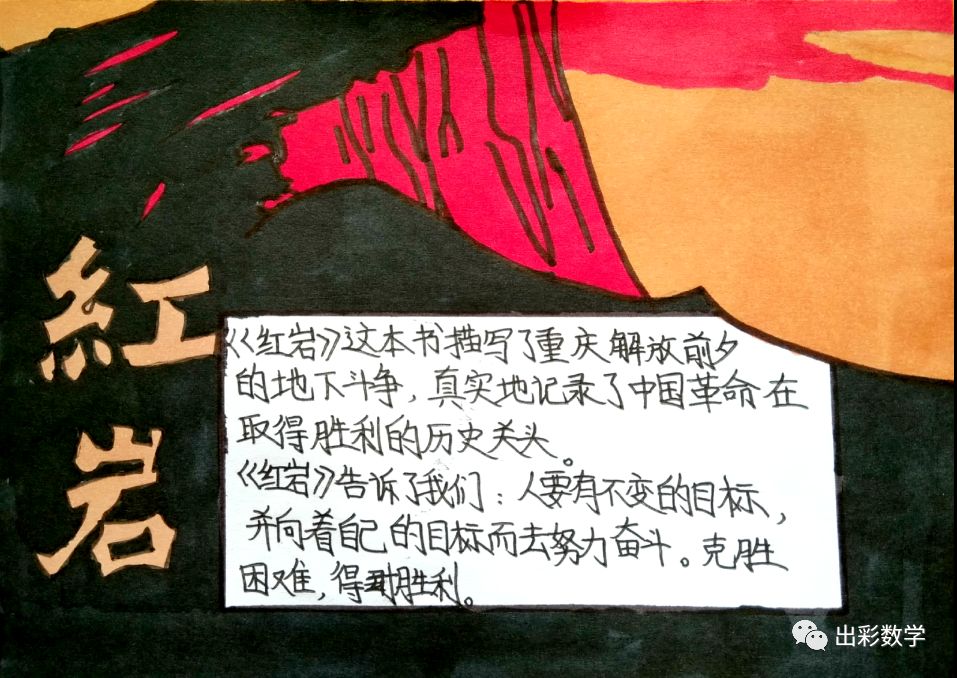 紅岩
《红岩》这本书描写了重庆解放前夕
的地下斗争，真实地记录了中国革命在
取得胜利的历史关头。
《红岩》告诉了我们：人要有不变的目标，
并向着自己的目标而去努力奋斗。克胜
困难，得到胜利。
出彩数学